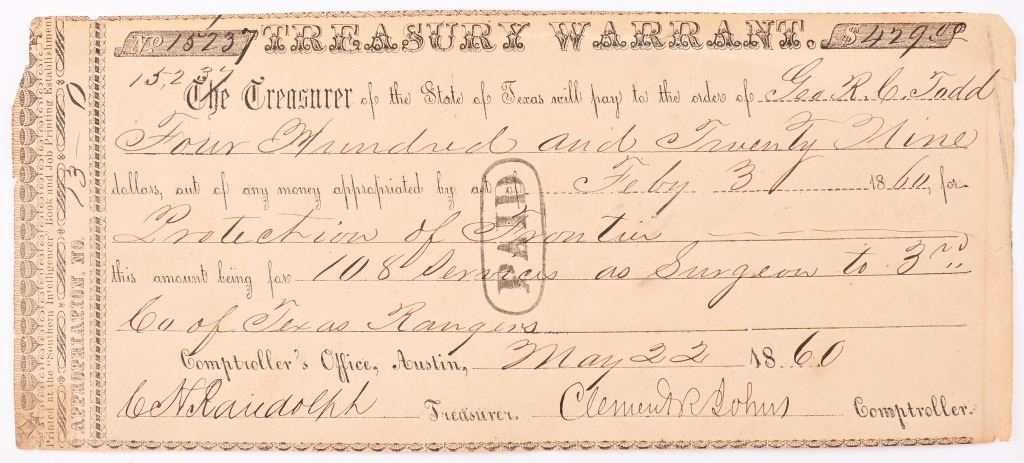 No 15237 TREASURY WARRANT. $429.00
15,237
The Treasurer of the State of Texas will pay to the order of Geo. R. C. Todd
Four Hundred and Twenty Nine
dollars, out of any money appropriated by act of Feby 3 1860, for
Protection of Frontier
this amount being for 108 Services as Surgeon to 3rd
Co of Texas Rangers
Comptroller's Office, Austin, May 22 1860
C H Randolph Treasurer. Clement R Johns Comptroller.
PAID
APPROPRIATION NO. 13-0
Printed at the "Southern Intelligencer" Book and Job Printing Establishment